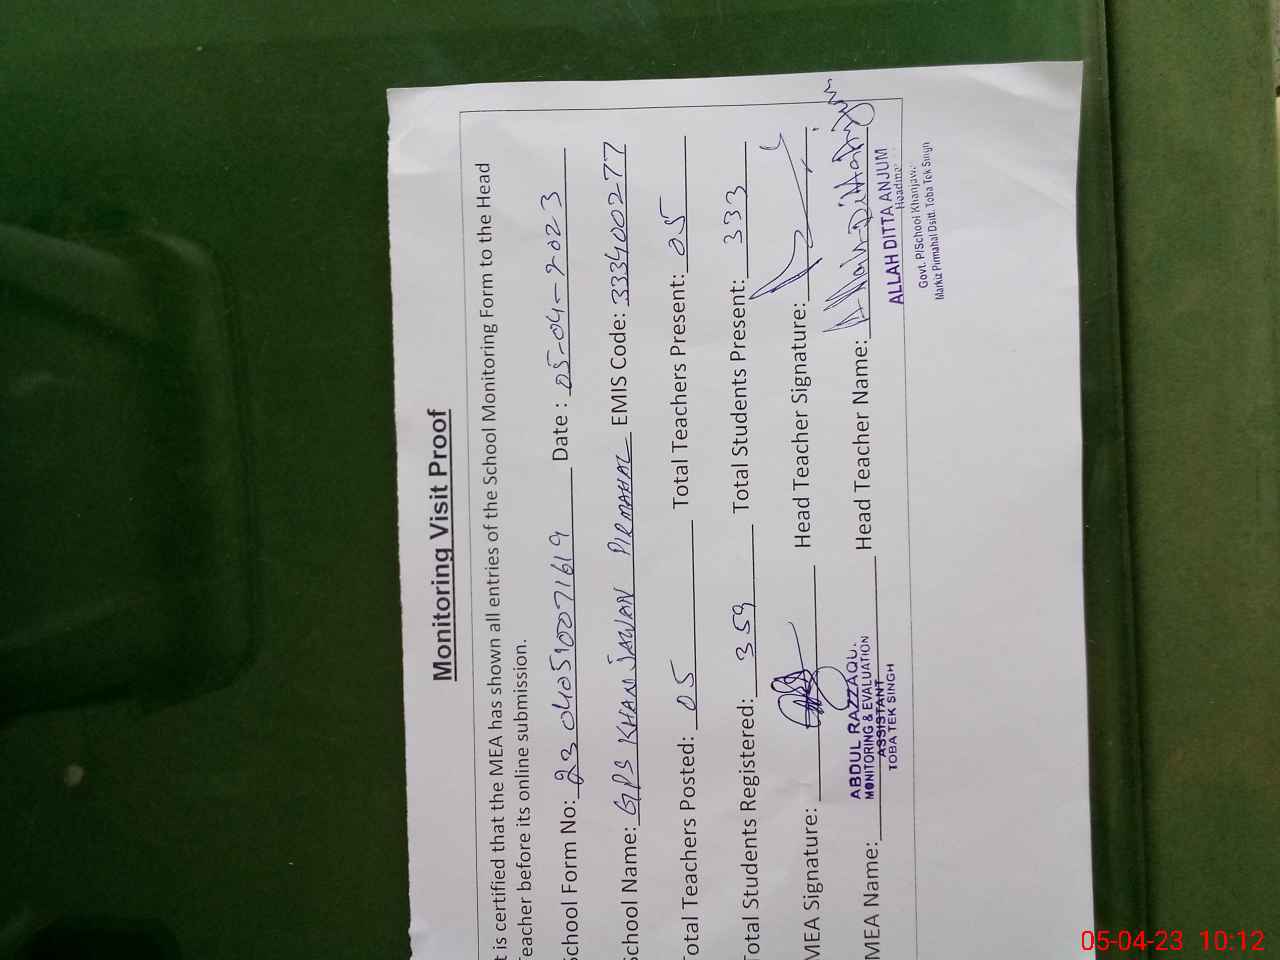 Monitoring Visit Proof
t is certified that the MEA has shown all entries of the School Monitoring Form to the Head
Teacher before its online submission.
School Form No: 23040510071619 Date : 05-04-2023
School Name: GPS KHAN JAWAN PIRMAHAL EMIS Code: 333400277
Total Teachers Posted: 05 Total Teachers Present: 05
Total Students Registered: 359 Total Students Present: 333
MEA Signature: Head Teacher Signature:
MEA Name: Head Teacher Name: Allah Ditta Anjum
ABDUL RAZZAQU.
MONITORING & EVALUATION
ASSISTANT
TOBA TEK SINGH
ALLAH DITTA ANJUM
Headma
Govt. P/School Khanjaw
Markiz Pirmahal Dsitt. Toba Tek Singh
05-04-23 10:12